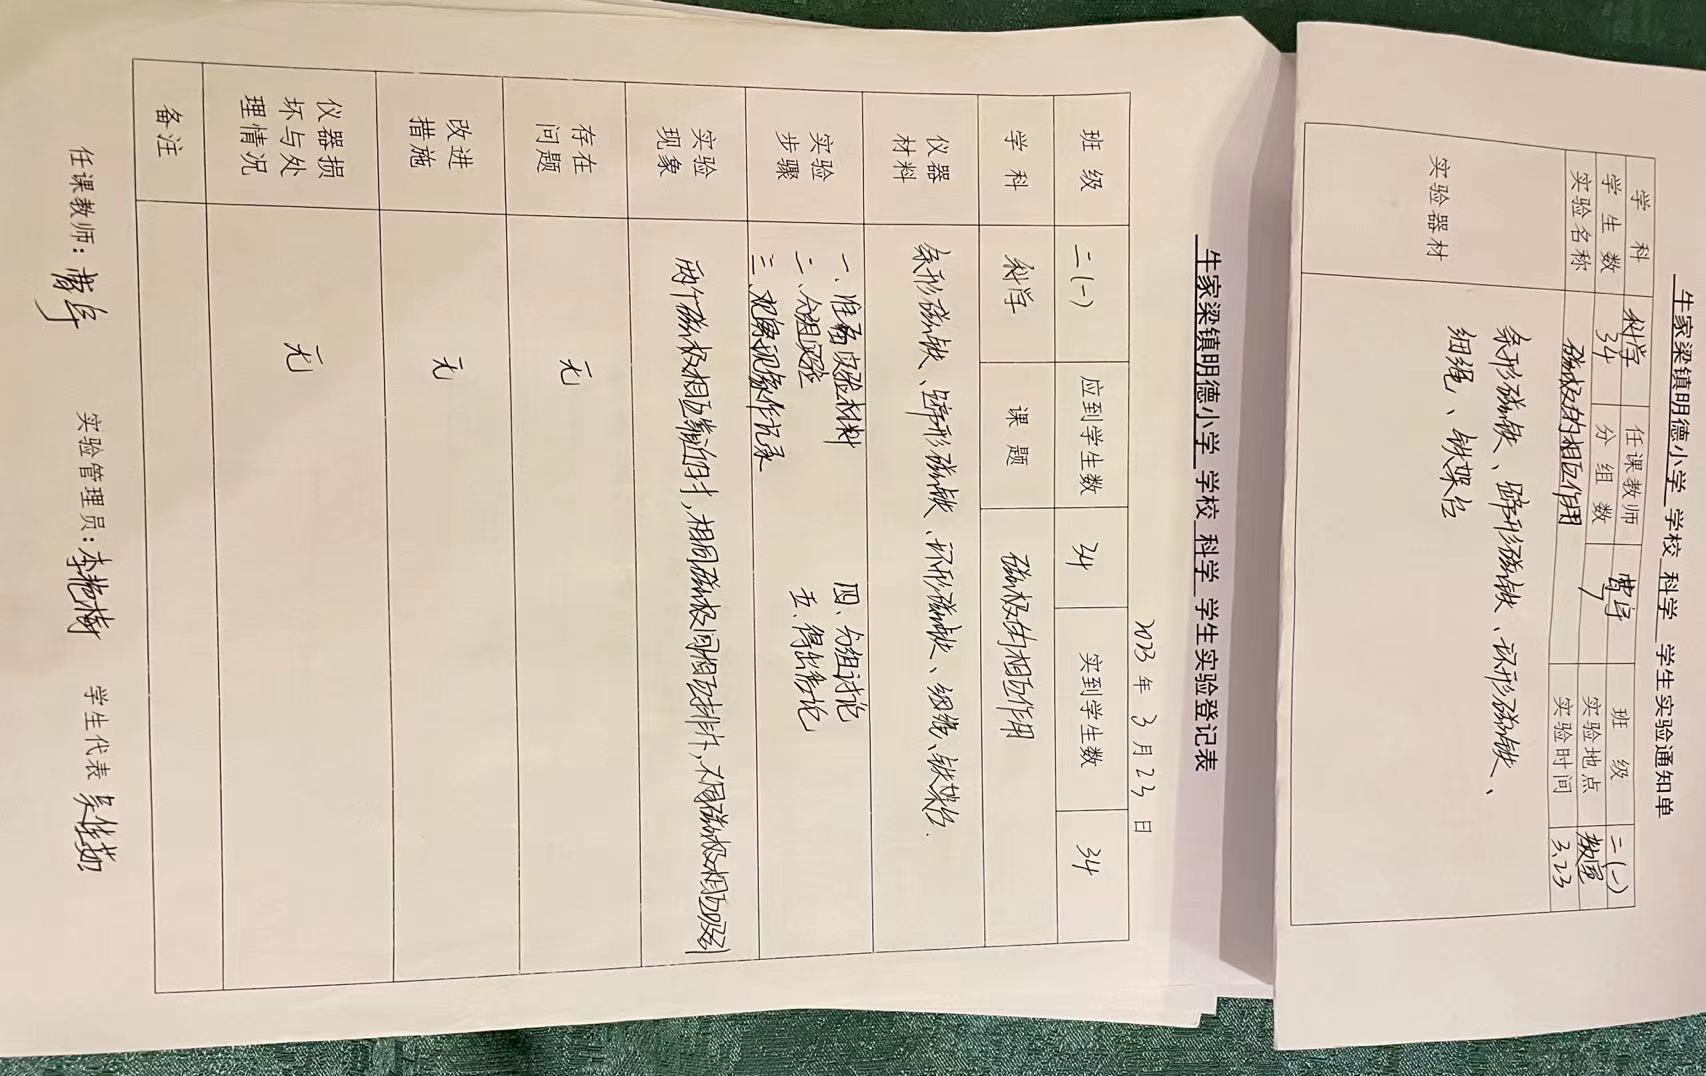 牛家梁镇明德小学 学校 科学 学生实验通知单
学 科 科学 任课教师 曹宇 班 级 二(一)
学 生 数 34 分 组 数 7 实验地点 教室
实验名称 磁极的相互作用 实验时间 3.23
实验器材
条形磁铁、蹄形磁铁、环形磁铁、
细绳、铁架台
牛家梁镇明德小学 学校 科学 学生实验登记表
2023 年 3 月 23 日
班 级 二(一) 应到学生数 34 实到学生数 34
学 科 科学 课 题 磁极的相互作用
仪器
材料
条形磁铁、蹄形磁铁、环形磁铁、细绳、铁架台.
实验
步骤
一、准备实验材料
二、分组实验
三、观察现象作记录
四、分组讨论
五、得出结论
实验
现象
两个磁极相互靠近时,相同磁极间相互排斥,不同磁极相互吸引
存在
问题
无
改进
措施
无
仪器损
坏与处
理情况
无
备注
任课教师: 曹宇 实验管理员: 李艳 学生代表 吴佳